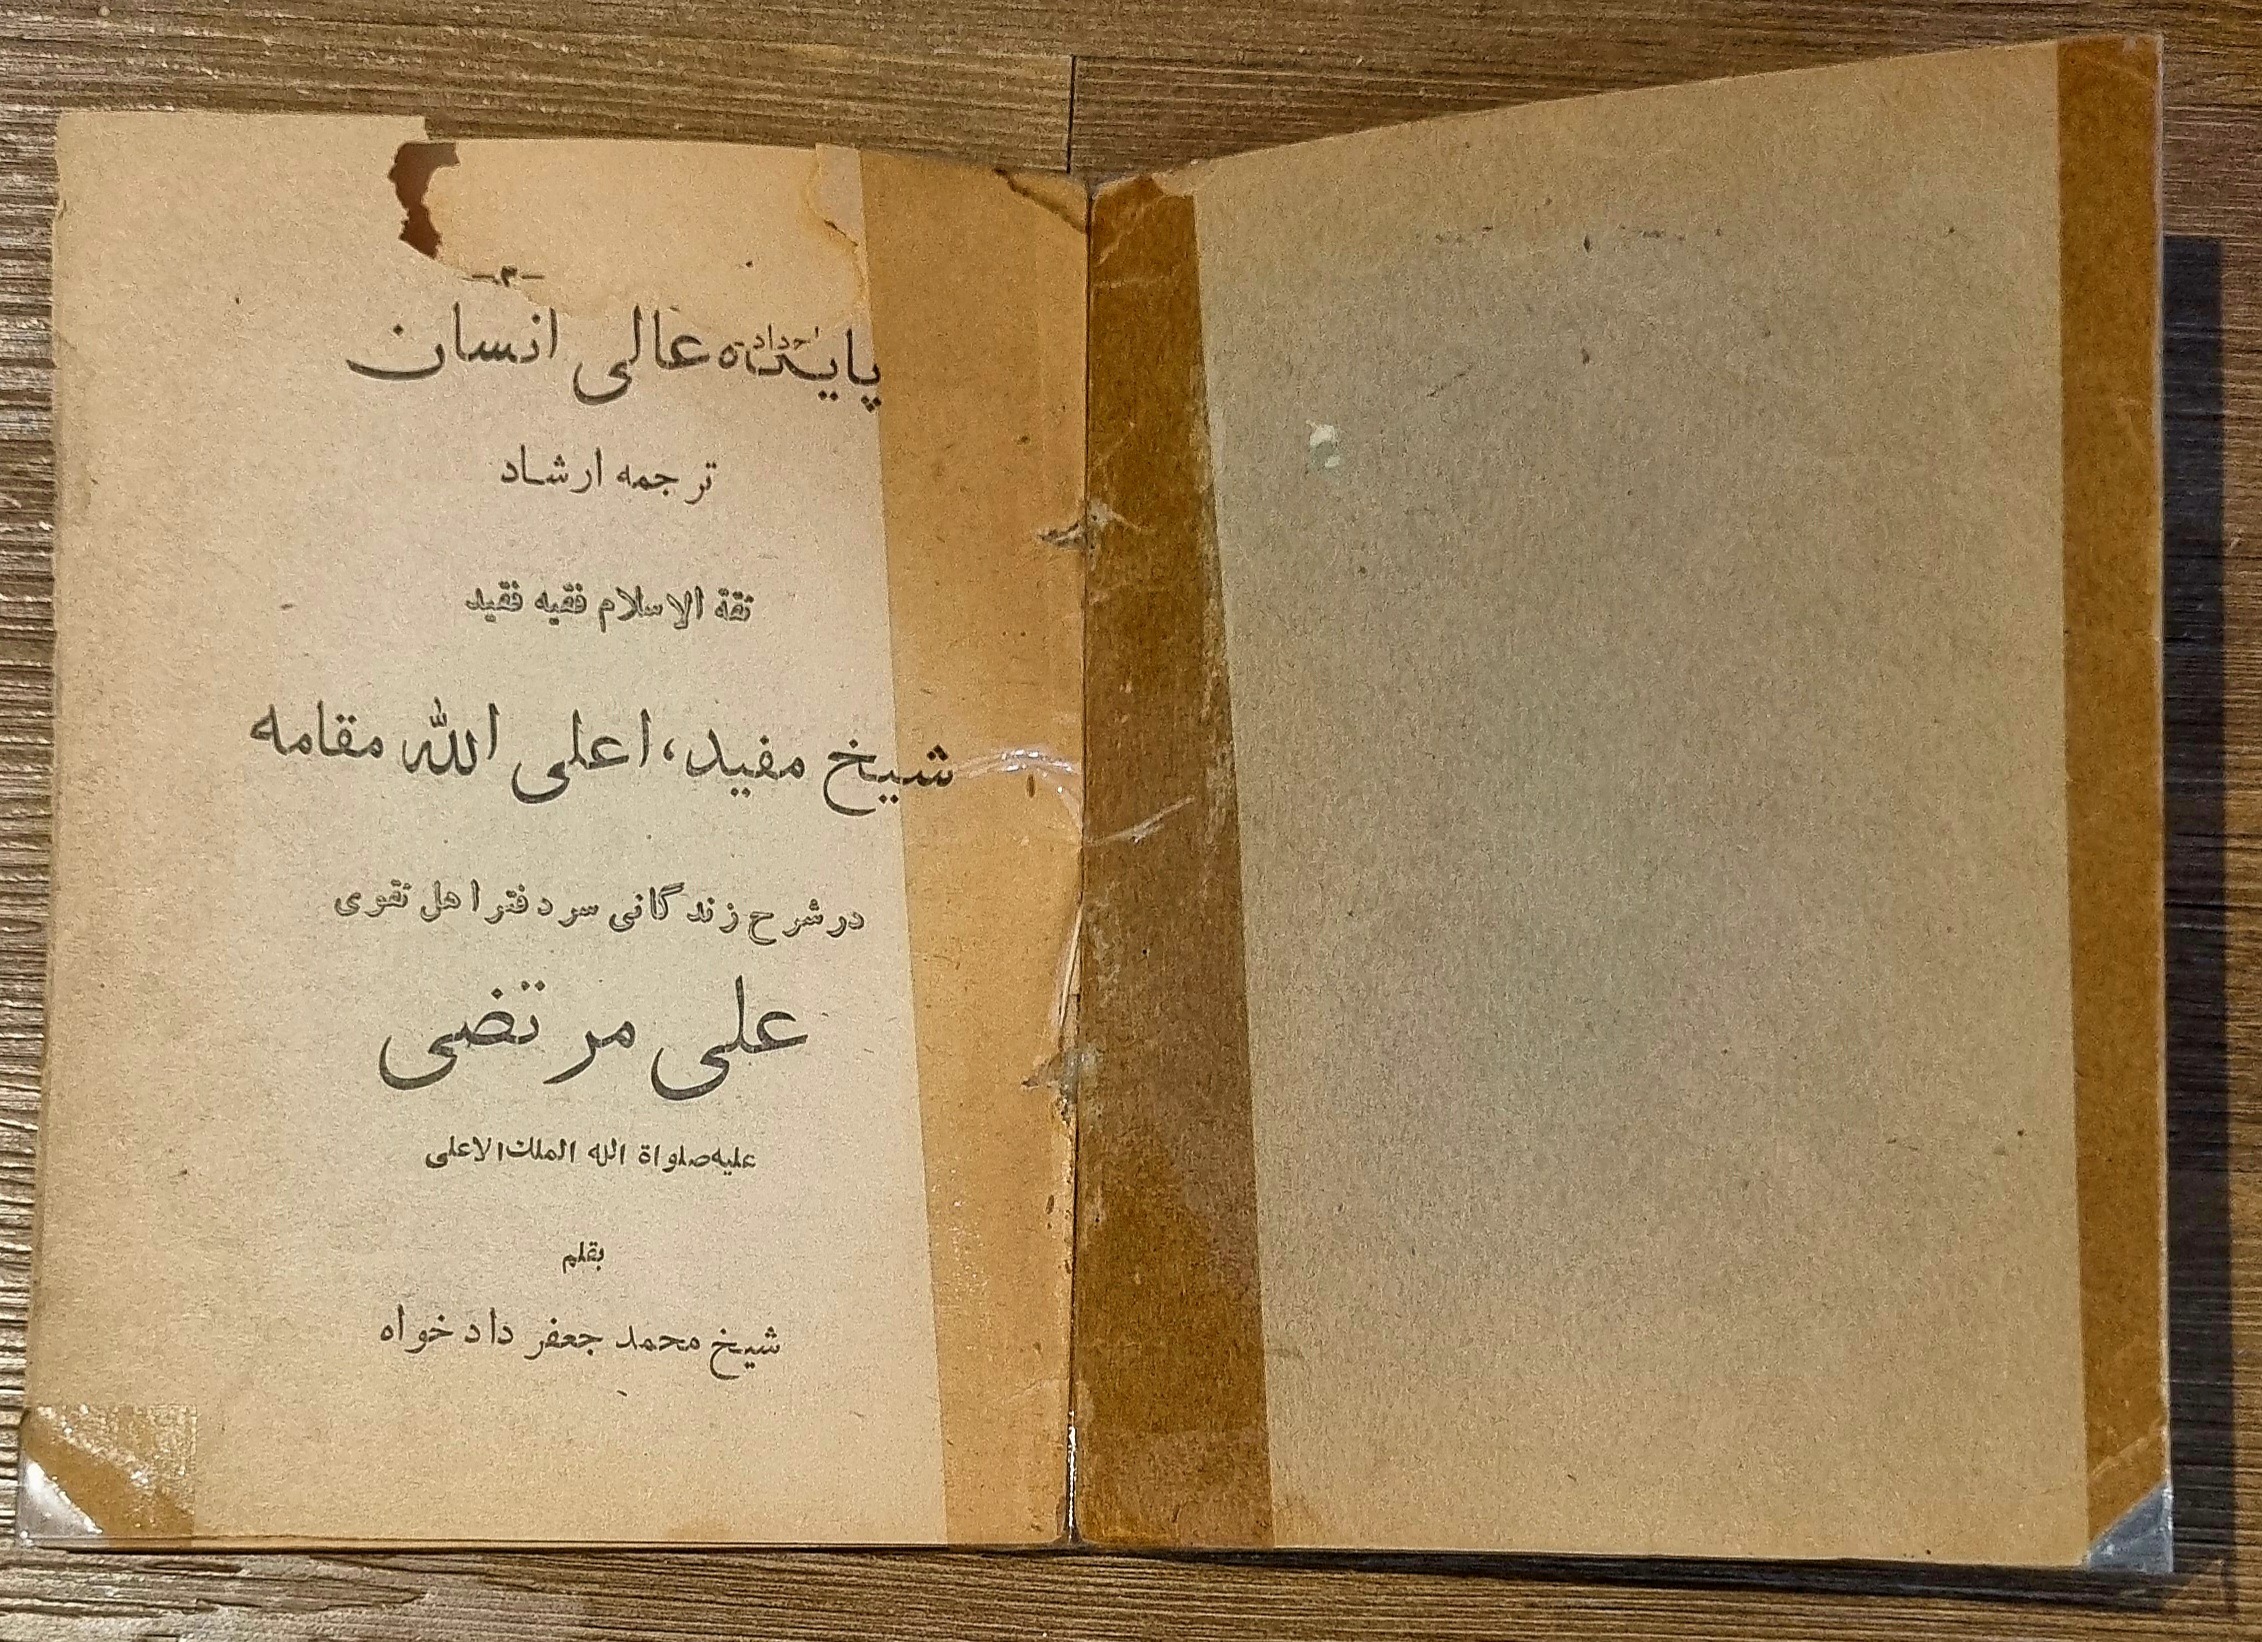 -۳-
عالی انسان
ترجمه ارشاد
ثقة الاسلام فقیه فقید
شیخ مفید، اعلی الله مقامه
در شرح زندگانی سردفتر اهل تقوی
علی مرتضی
علیه صلواة الله الملك الاعلی
بقلم
شیخ محمد جعفر دادخواه